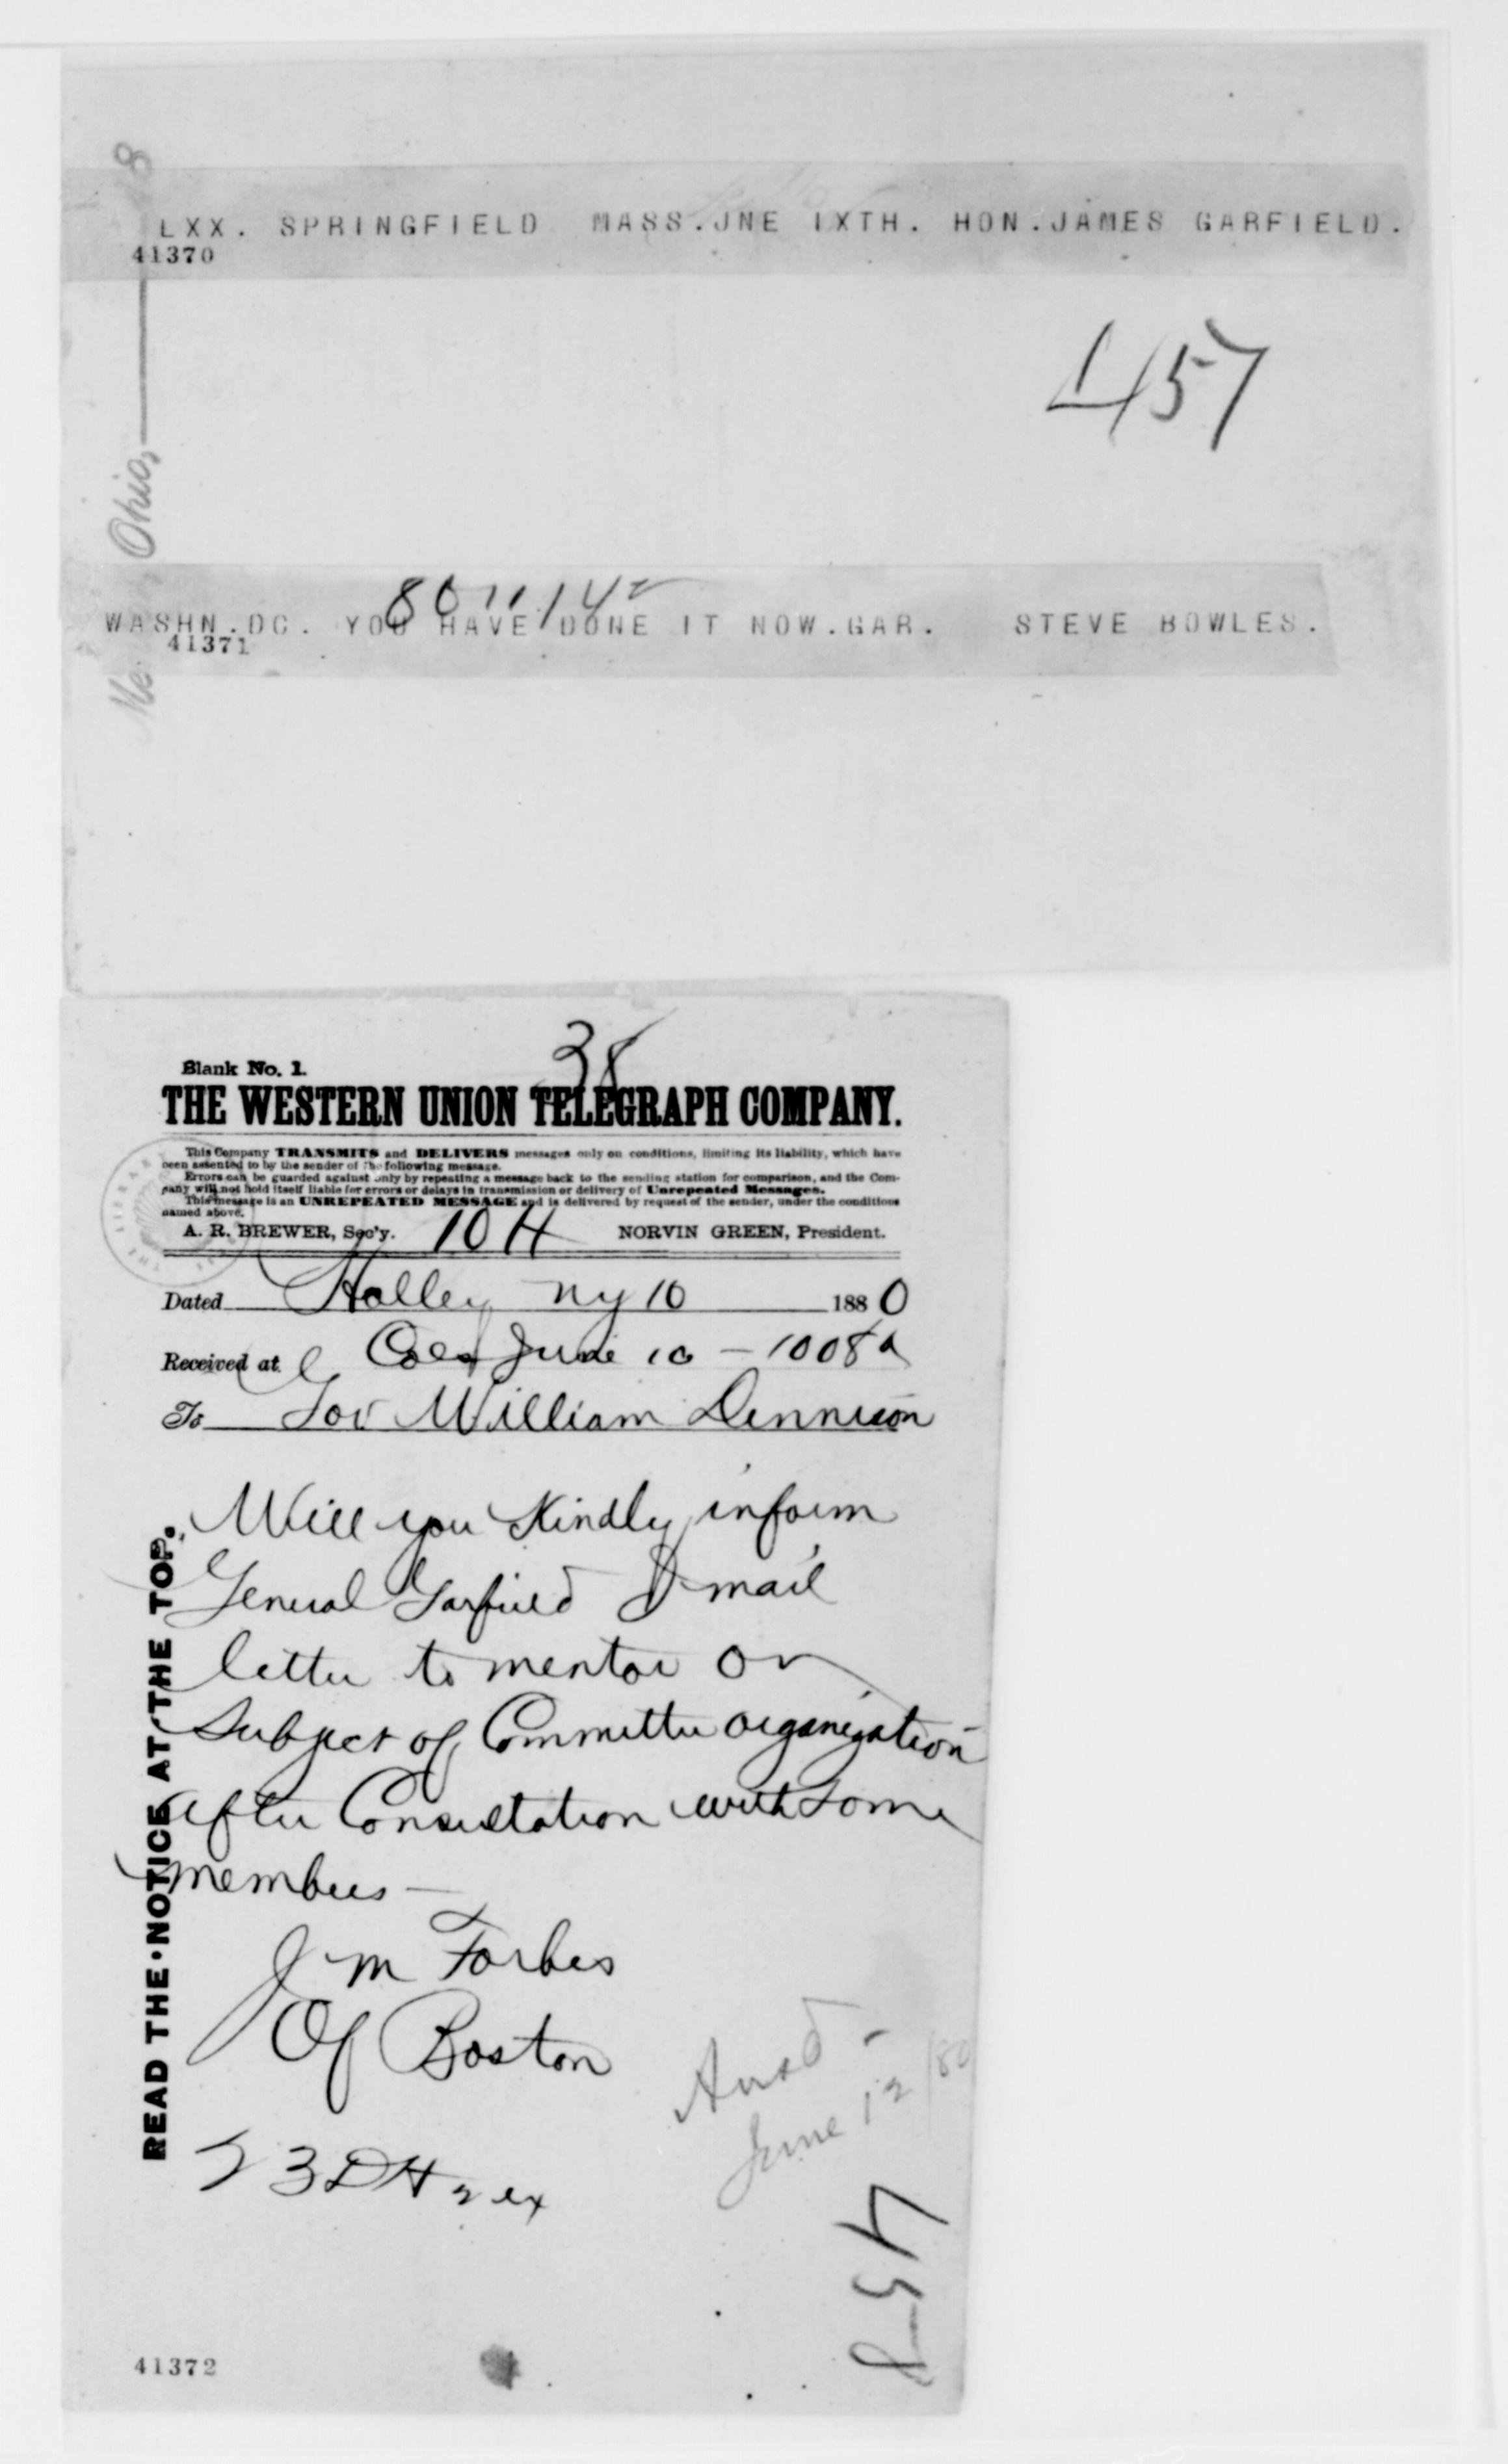 LXX. SPRINGFIELD MASS.JNE IXTH. HON.JAMES GARFIELD.
41370
457
Ohio,
WASHN.DC. YOU HAVE DONE IT NOW.GAR. STEVE BOWLES.
41371
38
Blank No. 1.
THE WESTERN UNION TELEGRAPH COMPANY.
This Company TRANSMITS and DELIVERS messages only on conditions, limiting its liability, which have
been assented to by the sender of the following message.
Errors can be guarded against only by repeating a message back to the sending station for comparison, and the Com-
pany will not hold itself liable for errors or delays in transmission or delivery of Unrepeated Messages.
This message is an UNREPEATED MESSAGE and is delivered by request of the sender, under the conditions
named above.
A. R. BREWER, Sec'y. 10 H NORVIN GREEN, President.
Dated Holley NY 10 1880
Received at June 10 - 1008a
To Gov William Dennison
Will you Kindly inform
General Garfield I mail
letter to mentor on
Subject of Committee organization
after Consultation with some
members —
J M Forbes
Of Boston
23 DH 2 ex
Ansd -
June 12/80
458
READ THE NOTICE AT THE TOP.
41372